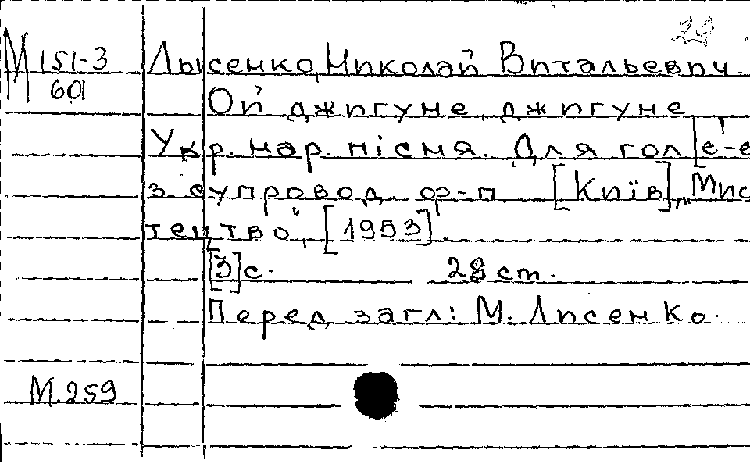 28
М 151-3
601
Лысенко, Николай Витальевич
Ой джигуне, джигуне
Укр. нар. пісня. Для гол [е-е
з супровод. ф-п [Київ], „Мис
тецтво", [1953].
[3] с. 28 см.
Перед загл: М. Лисенко.
М.259